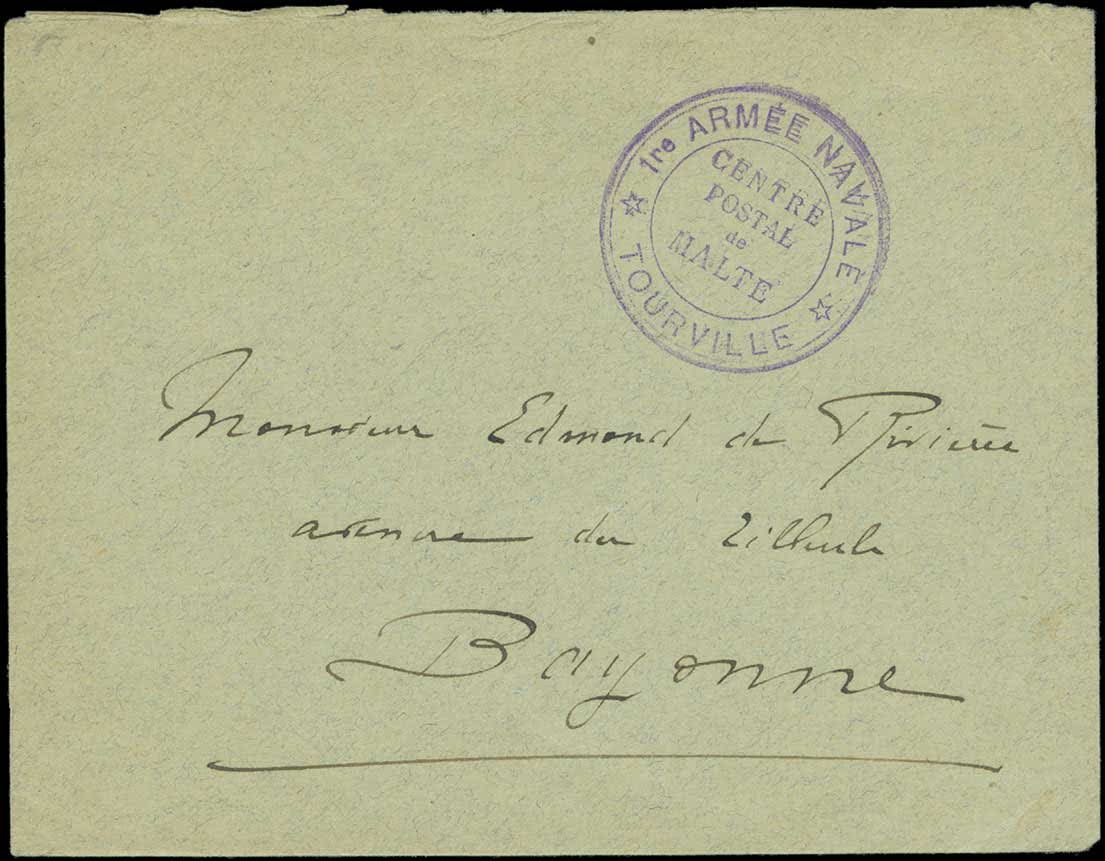 1re ARMÉE NAVALE
CENTRE
POSTAL
de
MALTE
TOURVILLE
Monsieur Edmond de Rivière
avenue du
Bayonne